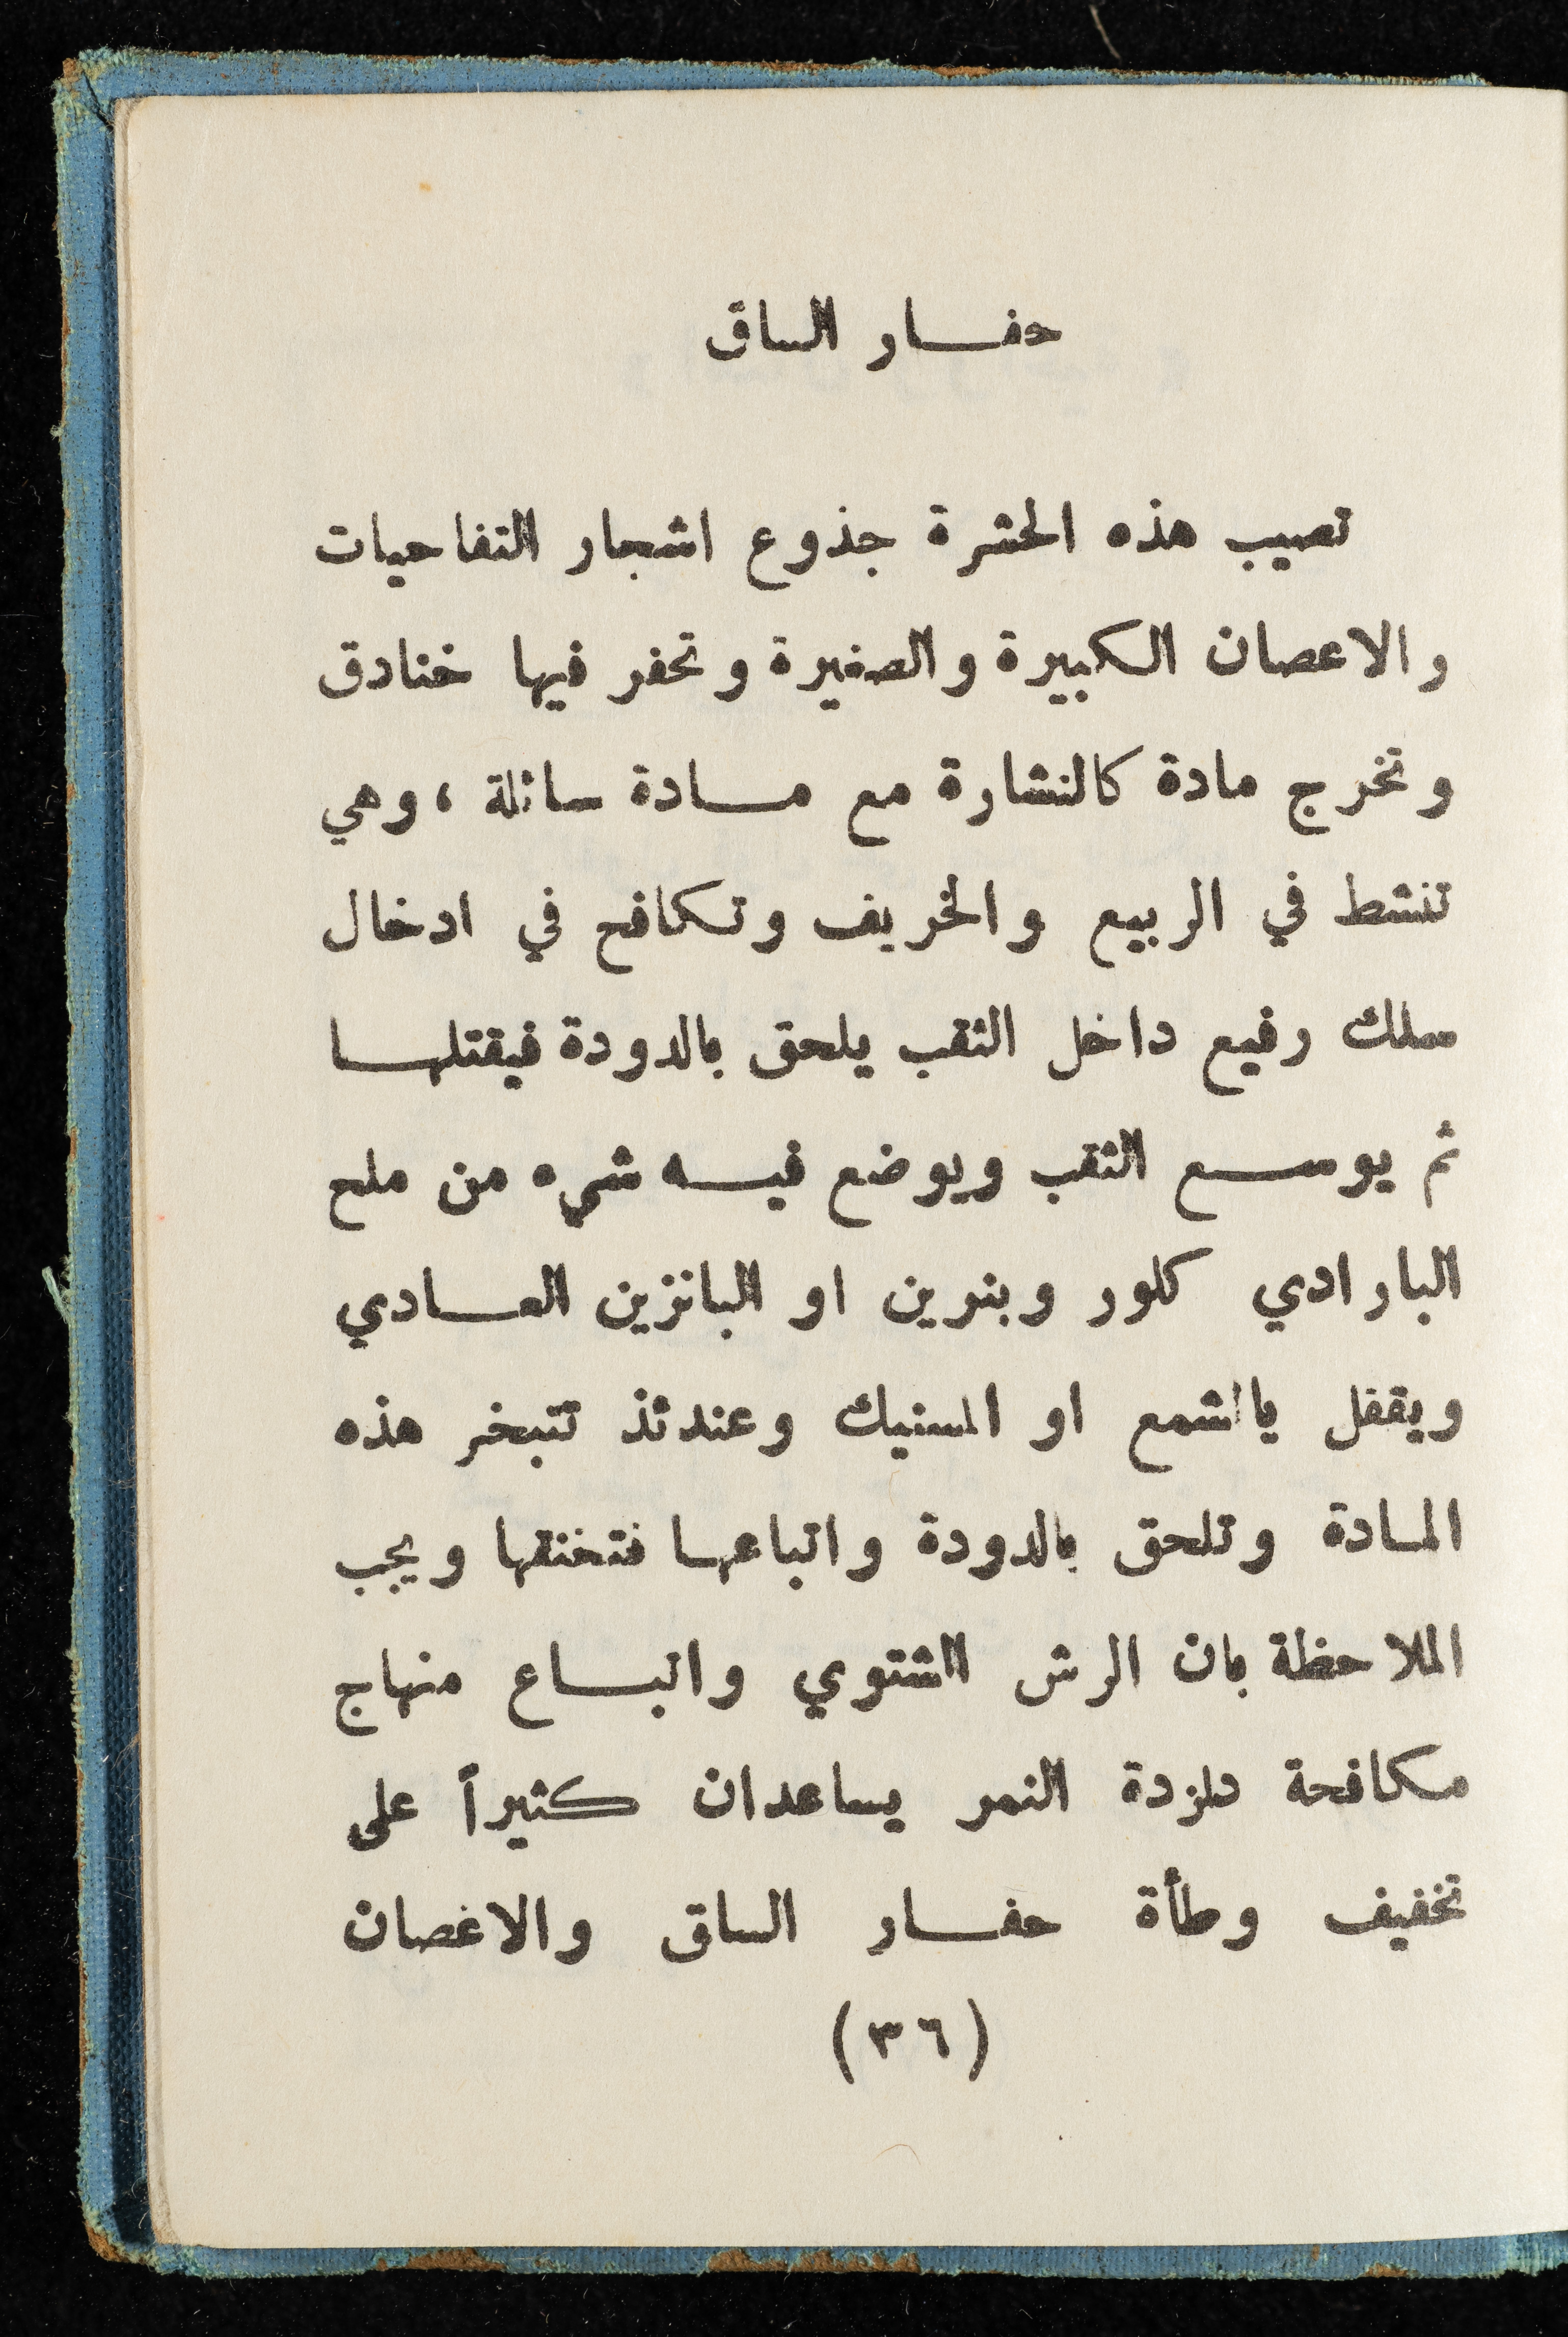 حفـــار الساق
تصيب هذه الحشرة جذوع اشجار التفاحيات
والاعصان الكبيرة والصغيرة وتحفر فيها خنادق
وتخرج مادة كالنشارة مع مـــادة سائلة ، وهي
تنشط في الربيع والخريف وتكافح في ادخال
سلك رفيع داخل الثقب يلحق بالدودة فيقتلهـــا
ثم يوســـع الثقب ويوضع فيـــه شيء من ملح
البارادي كلور وبنرين او البانزين العـــادي
ويقفل بالشمع او السنيك وعندئذ تتبخر هذه
المـادة وتلحق بالدودة واتباعهـا فتخنقها ويجب
الملاحظة بان الرش الشتوي واتبـــاع منهاج
مكافحة دلزدة النمر يساعدان كثيراً على
تخفيف وطأة حفـــار الساق والاغصان
(٣٦)